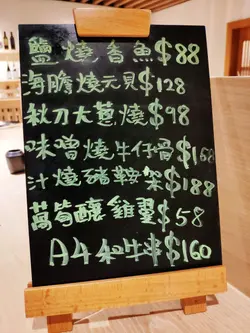 鹽燒香魚$88
海膽燒元貝$128
秋刀大蔥燒$98
味噌燒牛仔骨$168
汁燒豬鞍架$188
萬旬釀雞翼$58
A4和牛串$160